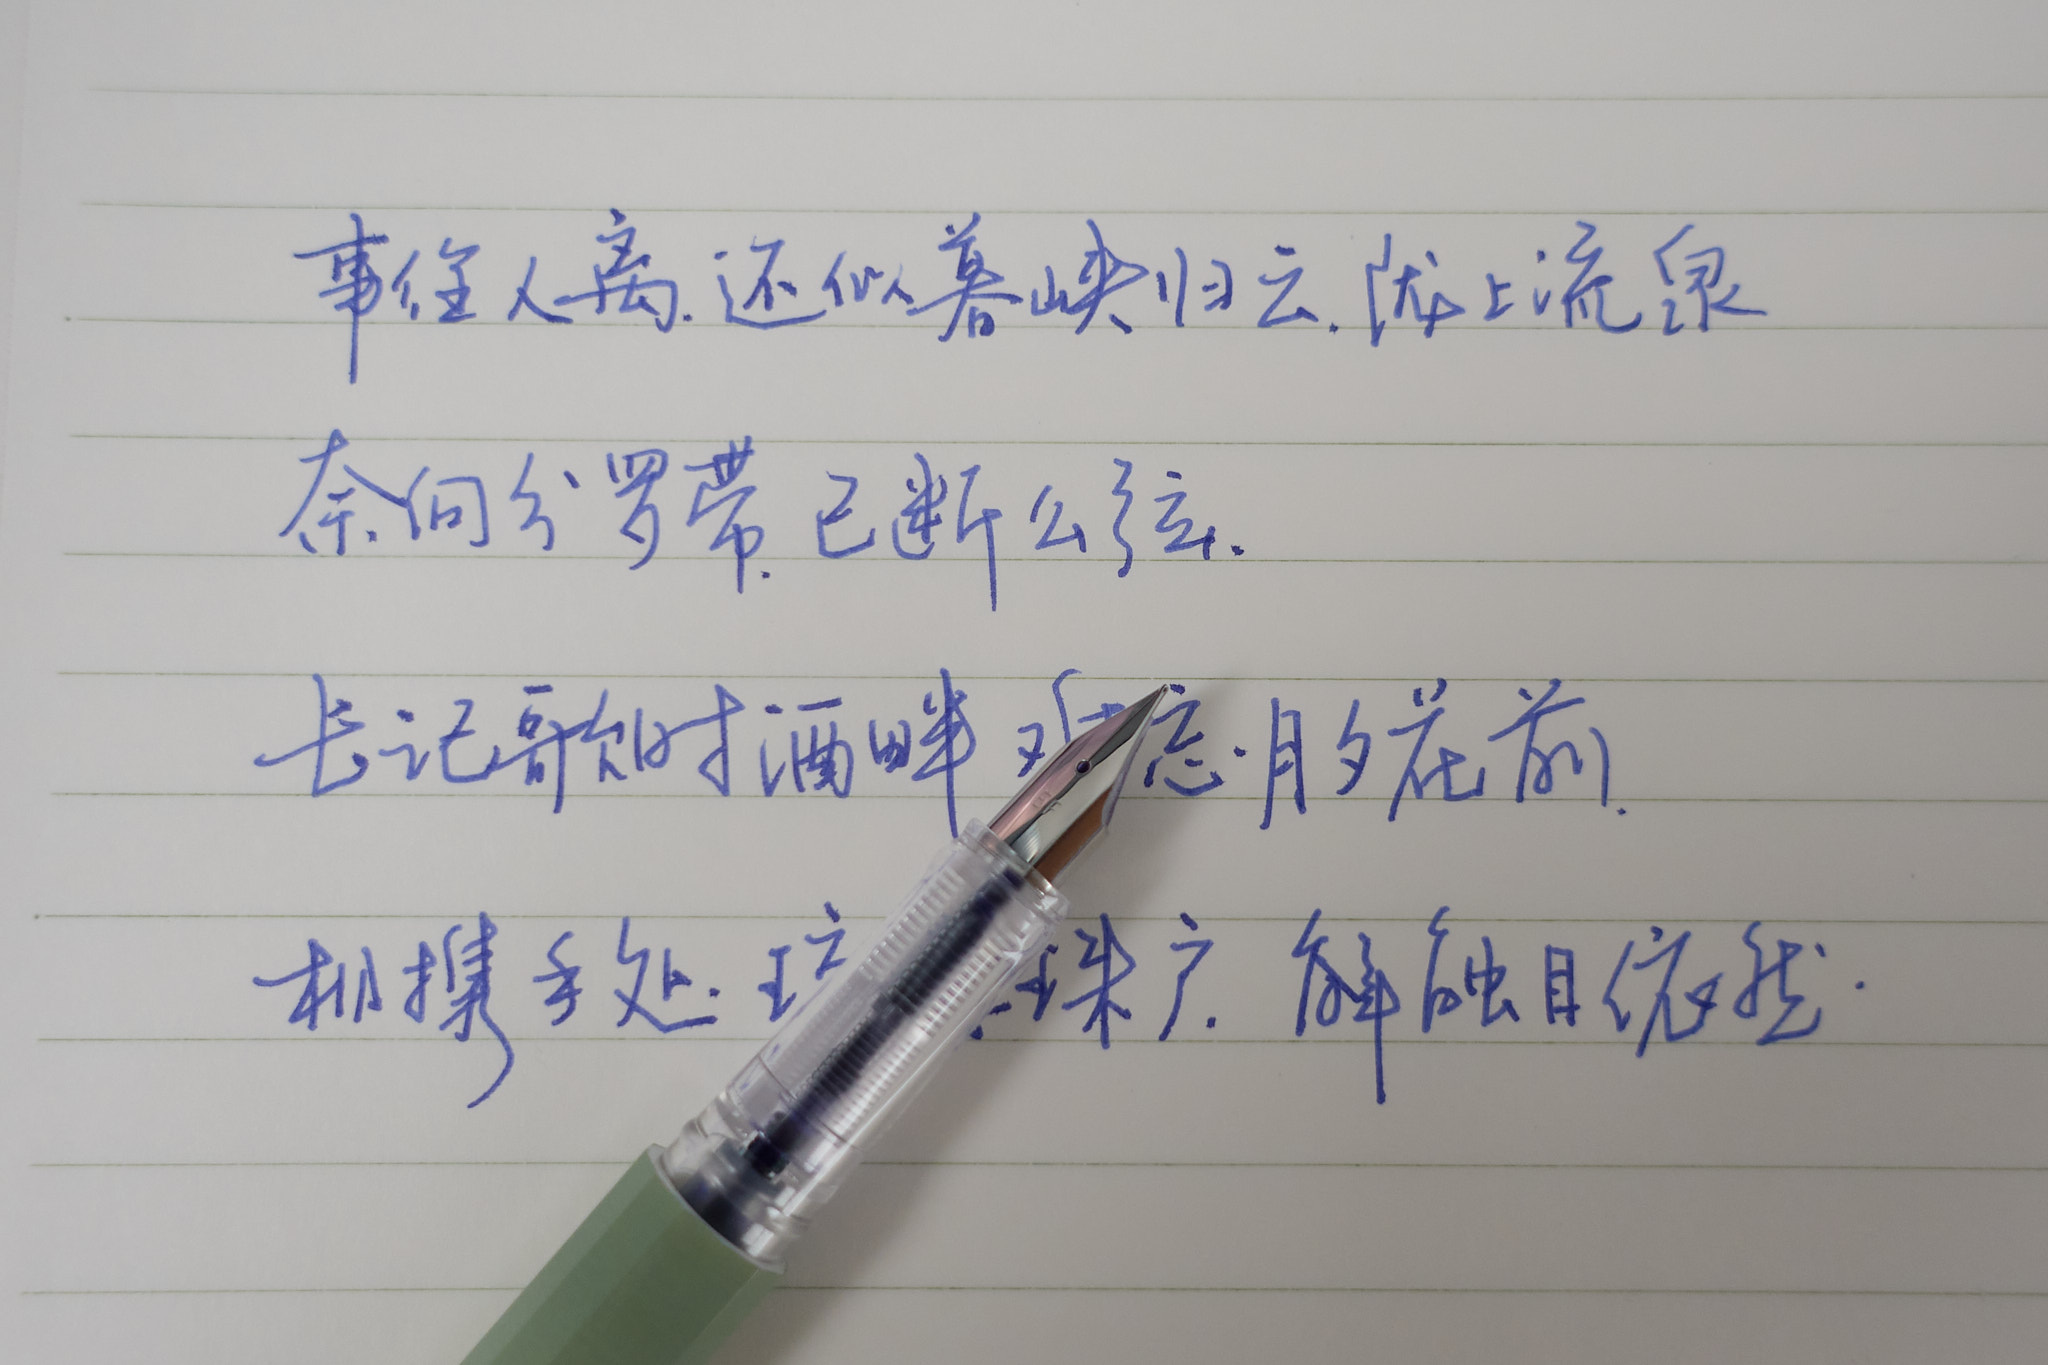 事往人离.还似暮峡归云.陇上流泉
奈向分罗带.已断么弦.
长记歌时酒畔难忘.月夕花前.
相携手处.琼珠户.解触目依然.